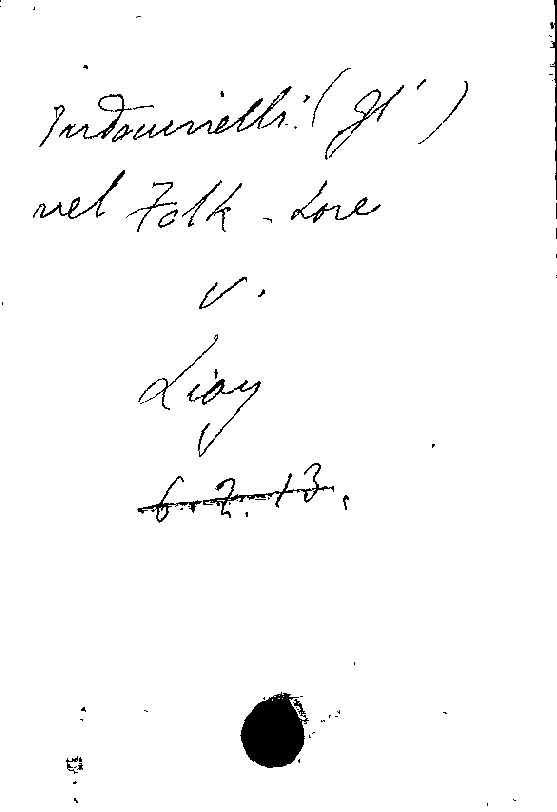 Indovinelli (Gl')
nel Folk-Lore
v.
Lioy
6.2.13.